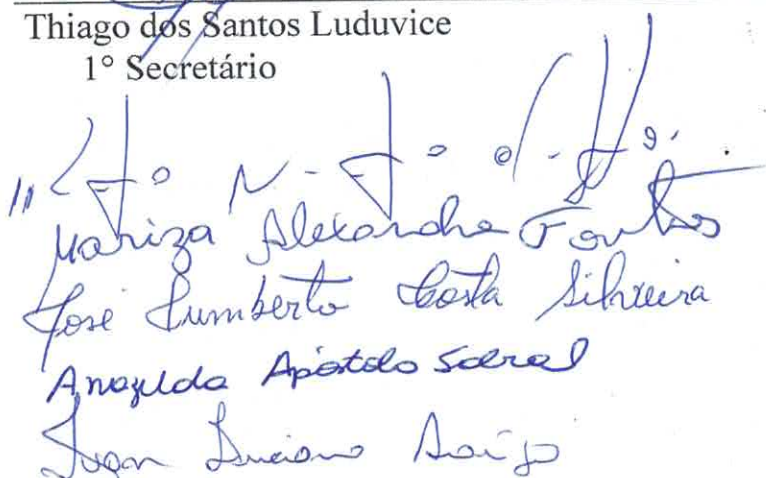 Thiago dos Santos Luduvice
1° Secretário
Mariza Alexandre Fontes
José Humberto Costa Silveira
Anazilda Apóstolo Sobral
Ivan Luciano Araújo